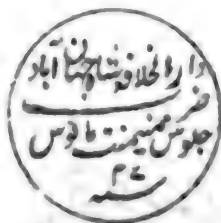 دار الخلافه شاہجہان آباد
ضرب
جلوس میمنت مانوس
سنه ۲۴